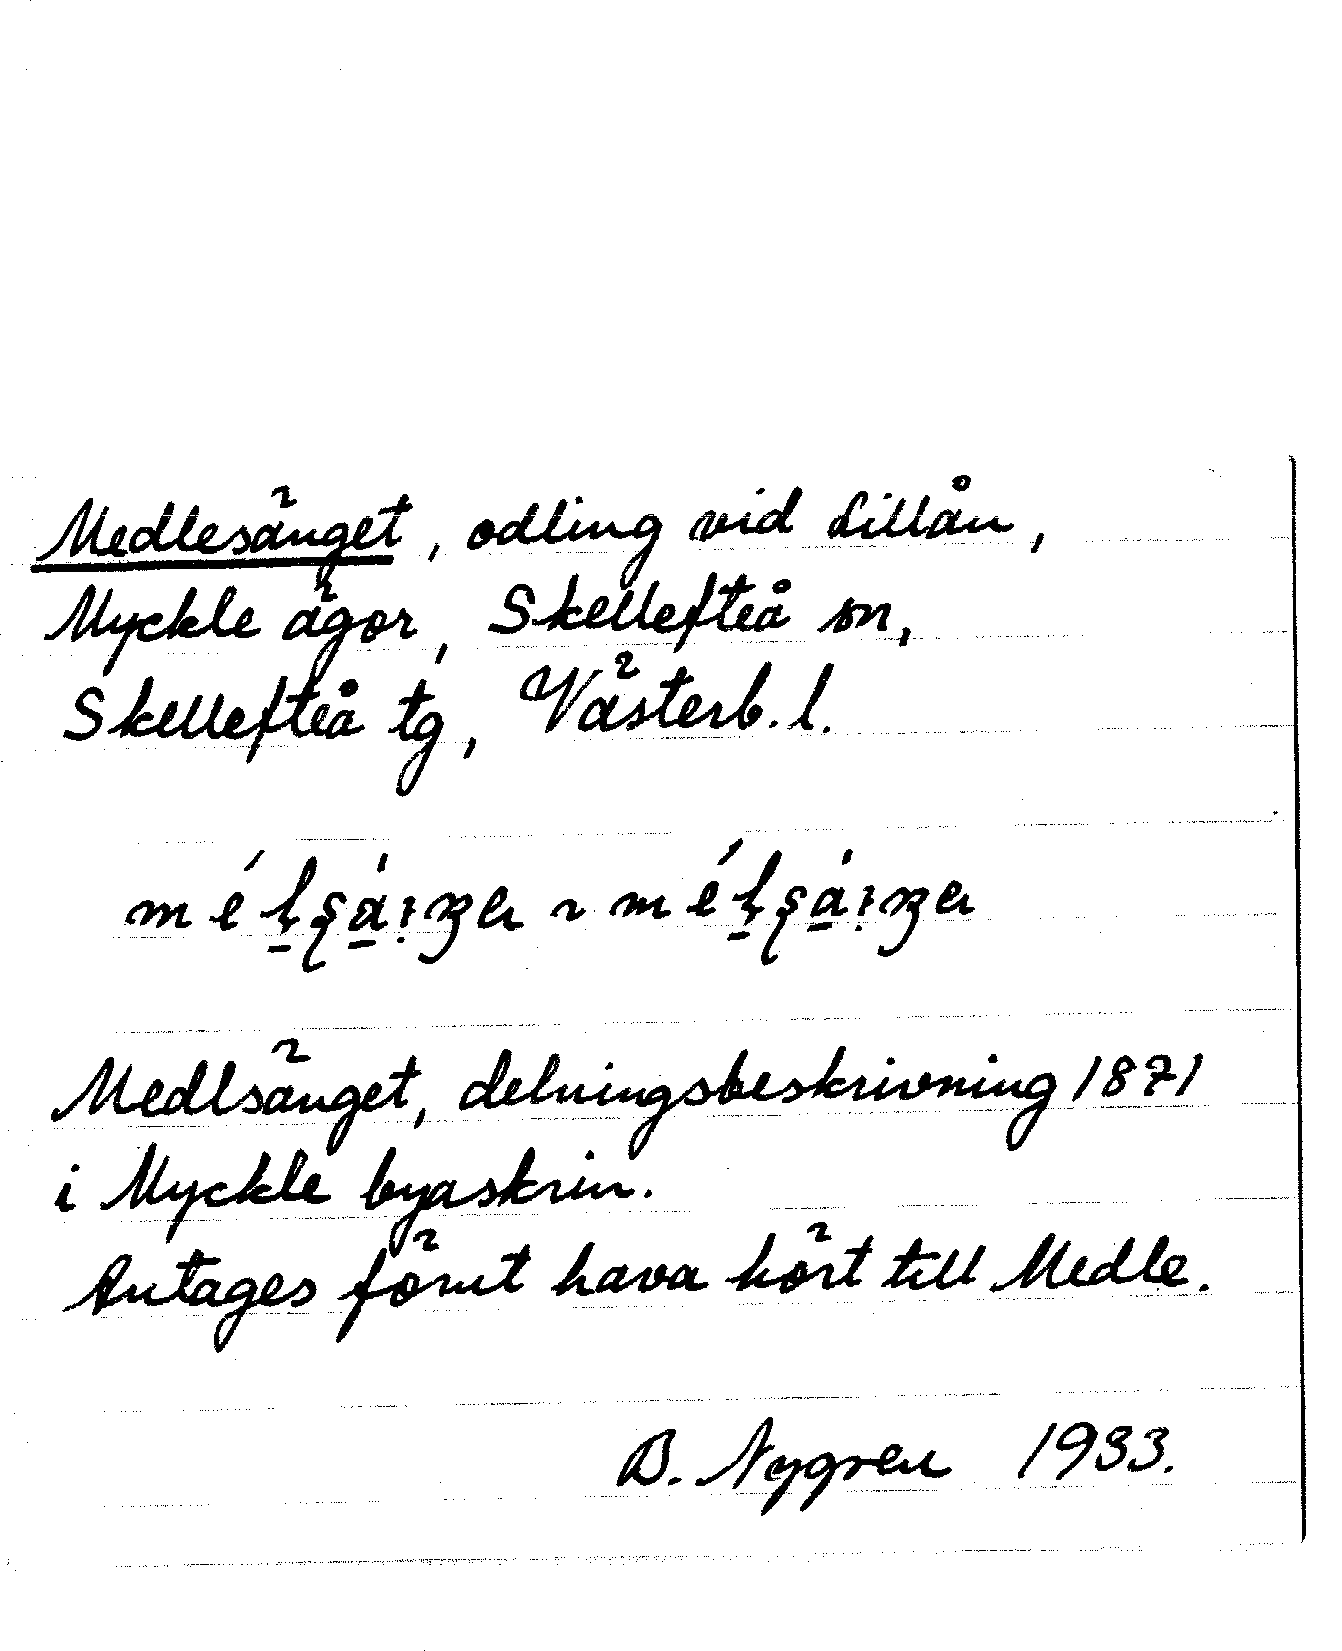 Medlesänget, odling vid Lillån,
Myckle ägor, Skellefteå sn,
Skellefteå tg, Västerb. l.
Medlsänget, delningsbeskrivning 1871
i Myckle byaskrin.
Antages förut hava hört till Medle.
B. Nygren 1933.